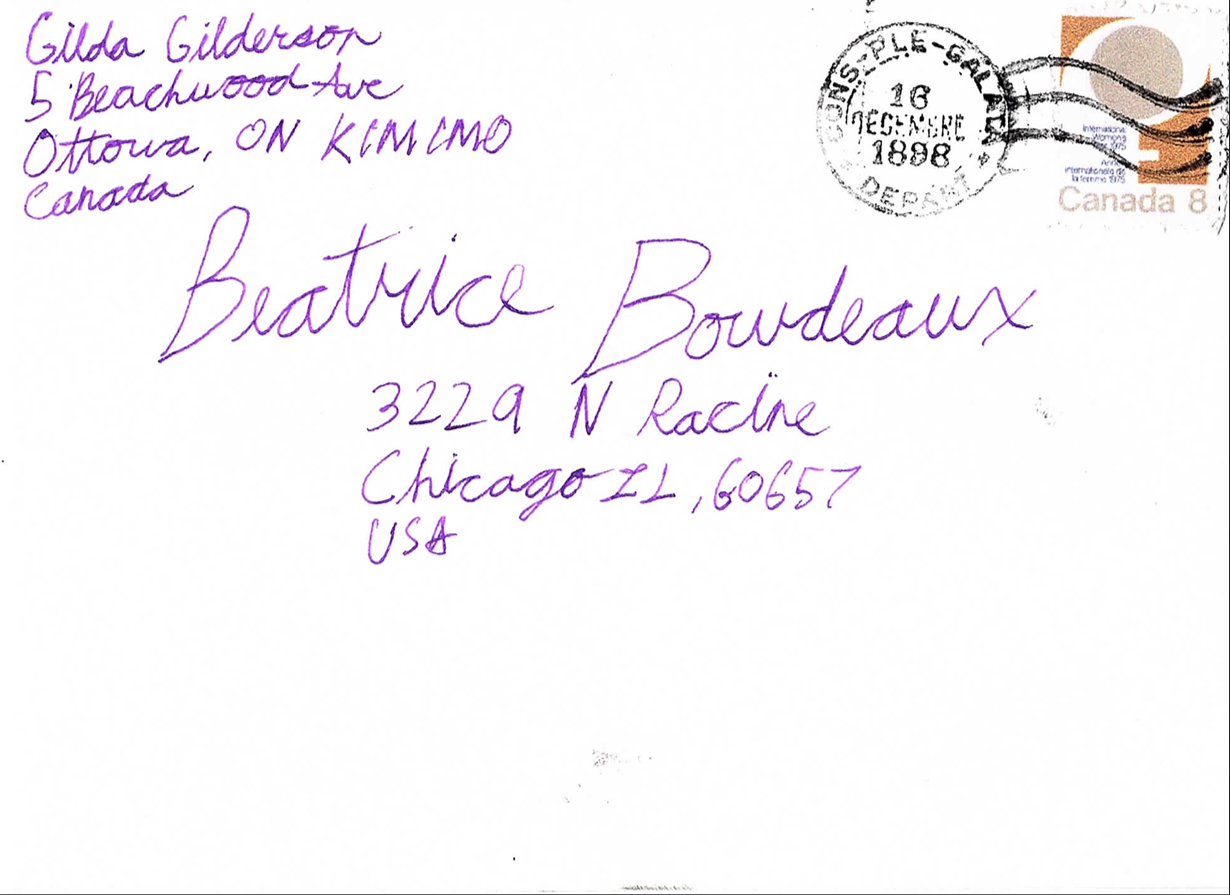 Gilda Gilderson
5 Beachwood Ave
Ottowa, ON K1M1M0
Canada
CONS-PLE-GALATA
16
DECEMBRE
1898
DEPART
International
Women's
Year 1975
Année
internationale de
la femme 1975
Canada 8
Beatrice Bourdeaux
3229 N Racine
Chicago IL, 60657
USA